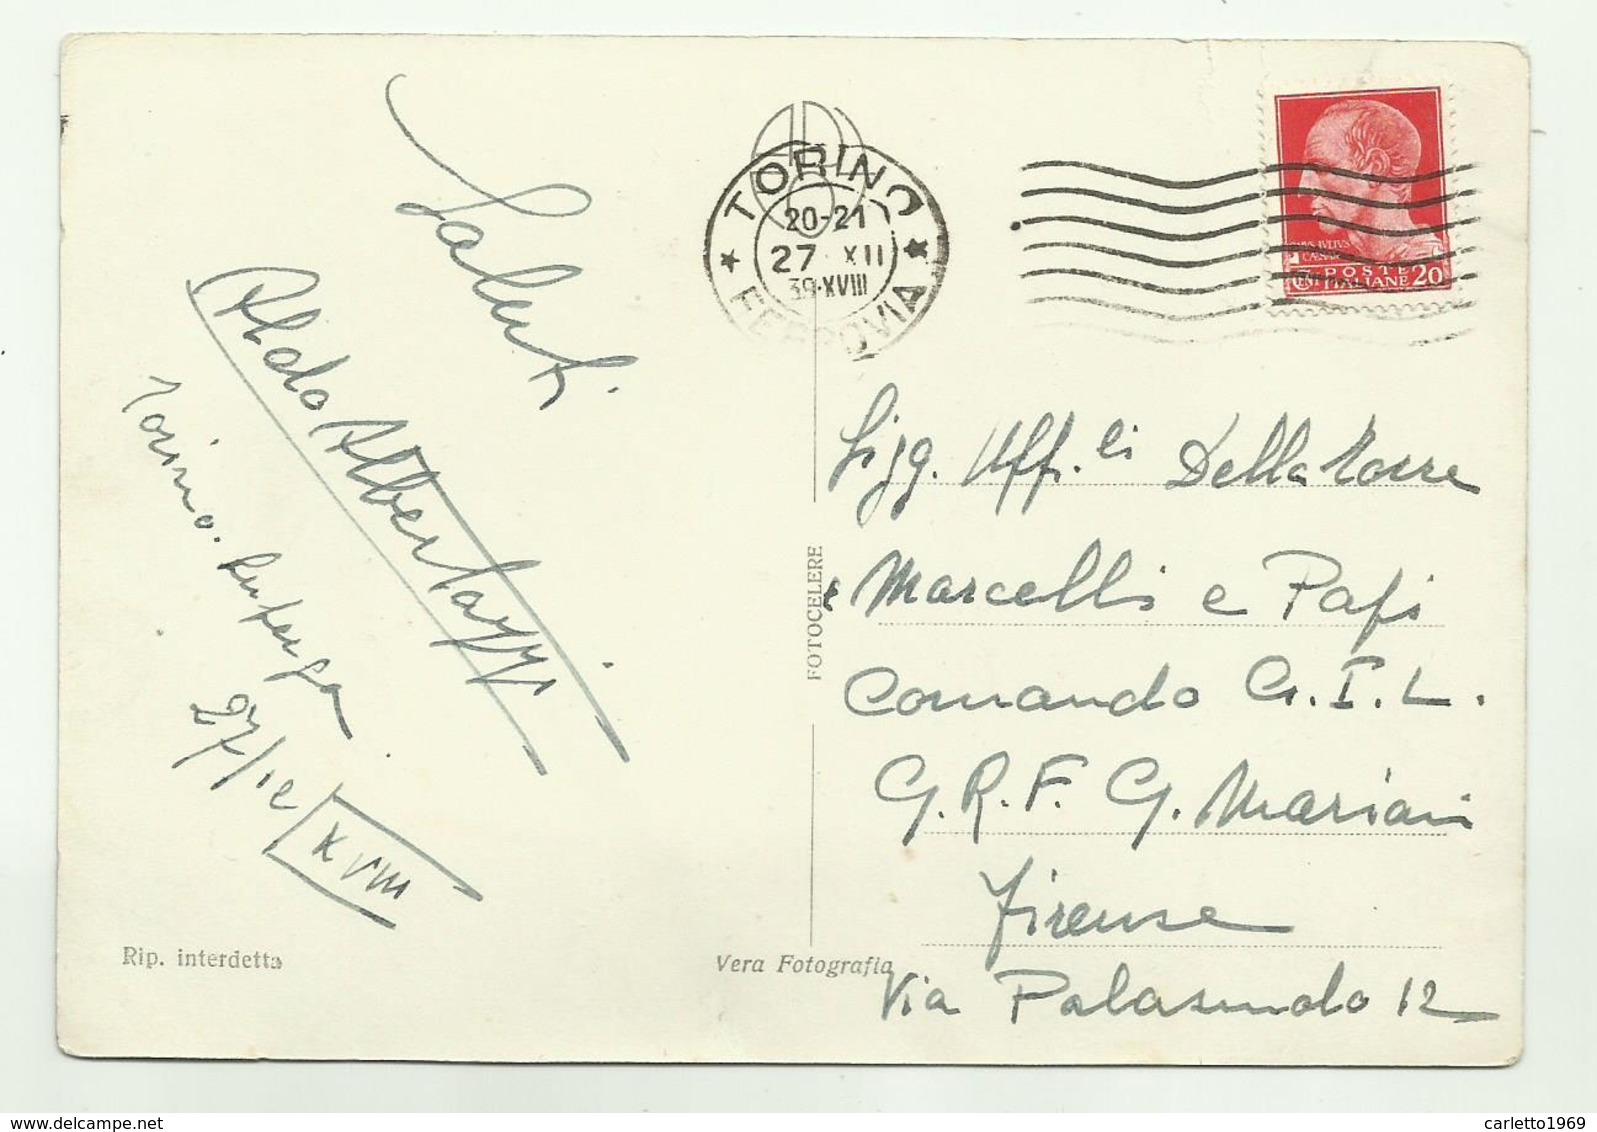 Saluti
Aldo Albertazzi
Torino.
27/12 XVIII
Rip. interdetta
Vera Fotografia
FOTOCELERE
TORINO
20-21
27 XII
39·XVIII
FERROVIA
POSTE
ITALIANE 20
Sigg. Uff.li Della Torre
Marcelli e Papi
Comando G.I.L.
G.R.F. G. Mariani
Firenze
Via Palasuolo 12
carletto1969
delcampe.net